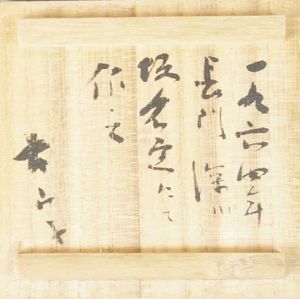 一九六四年
長門 深川
坂倉窯にて
作之